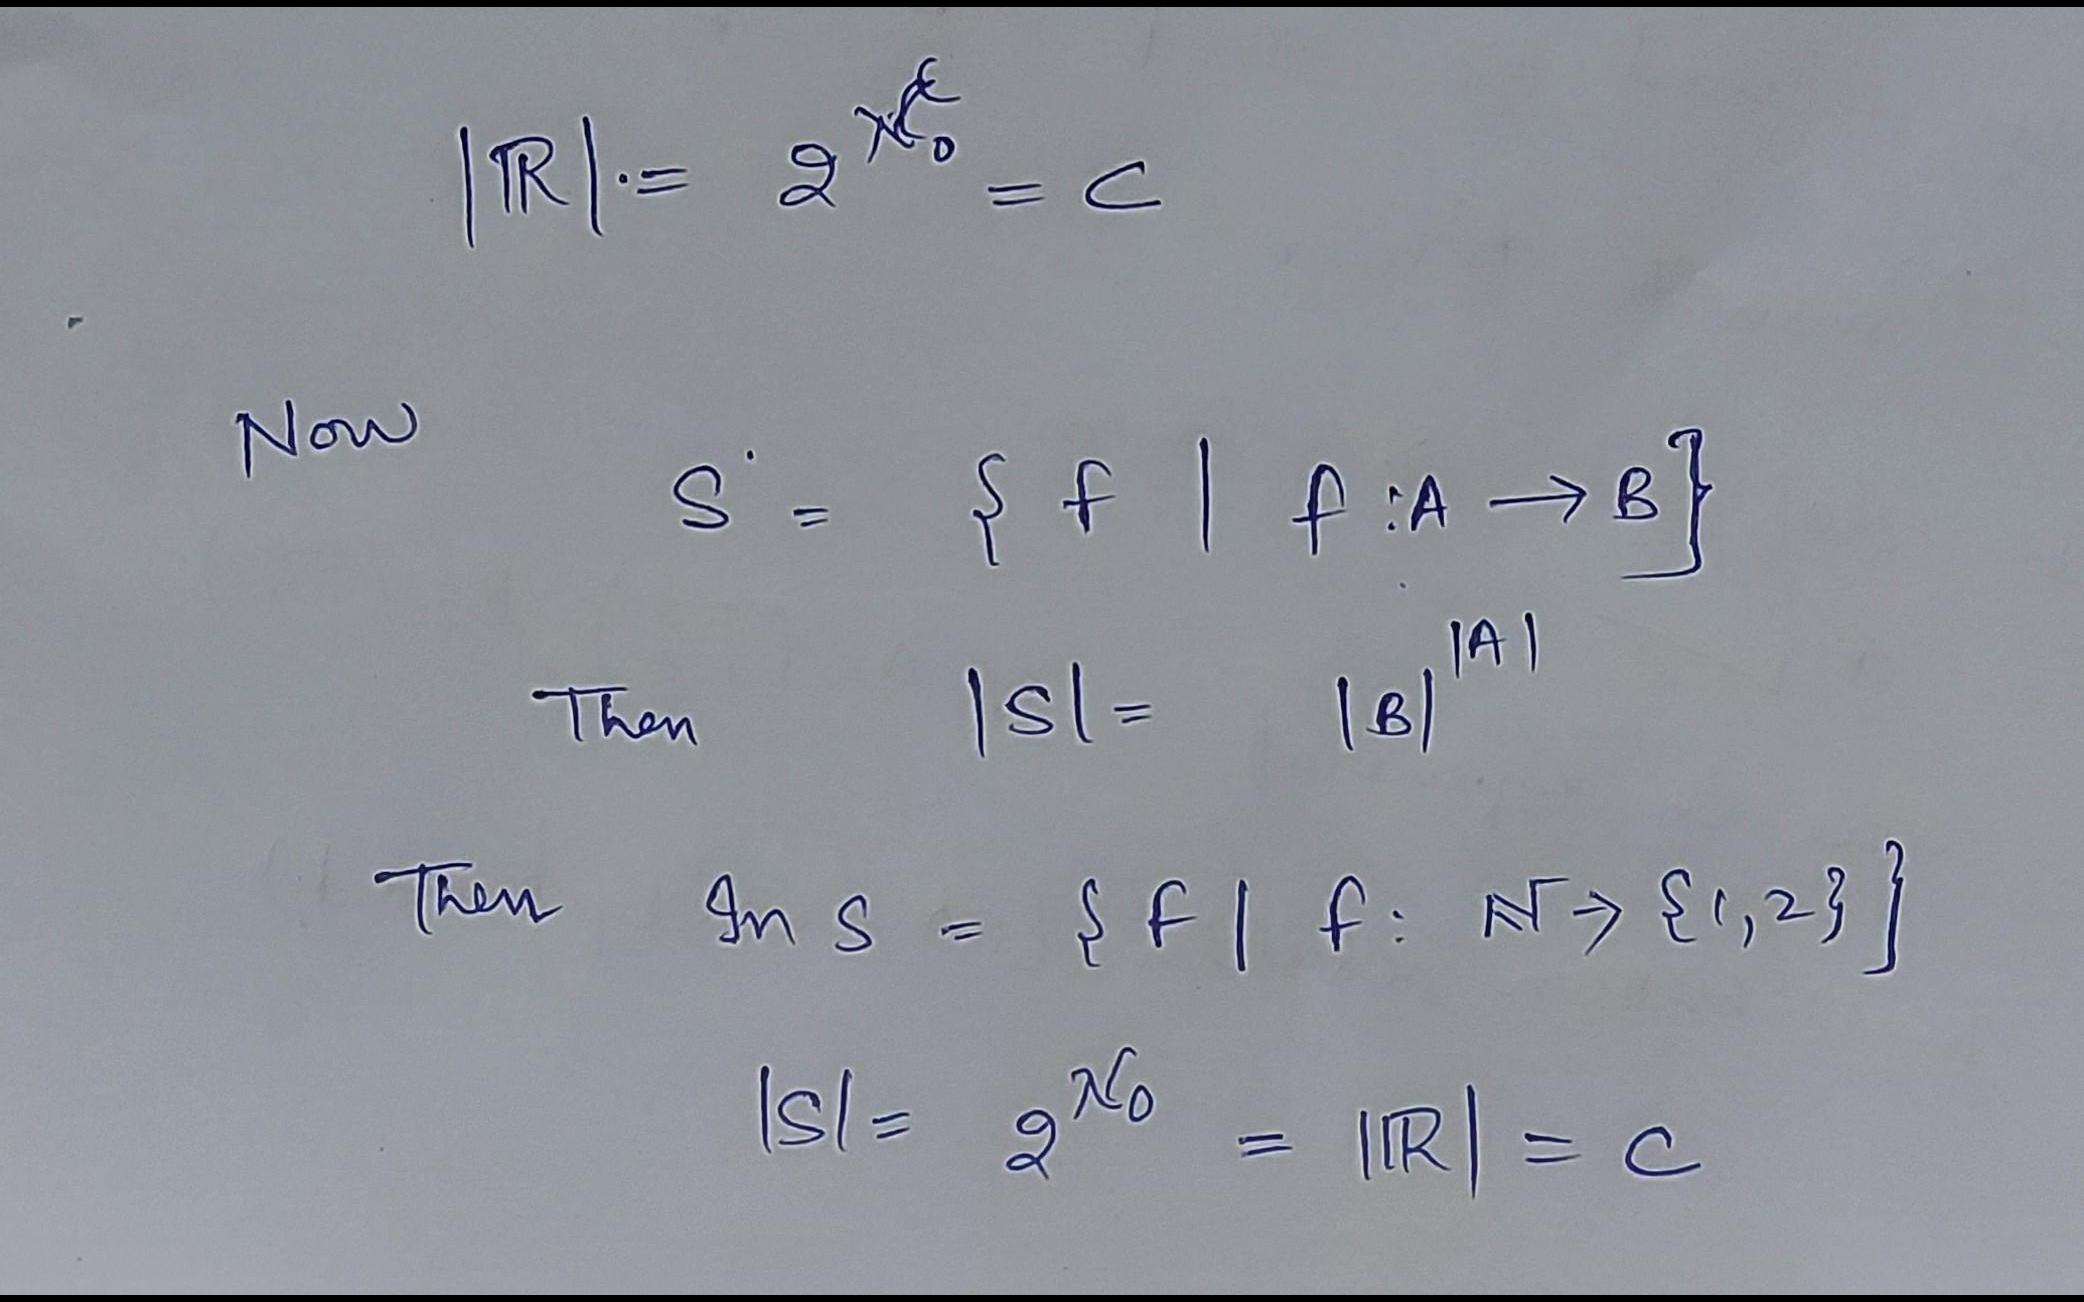 |ℝ| = 2^ℵ₀ = C
Now
S = { f | f : A → B }
Then |S| = |B|^|A|
Then In S = { f | f : ℕ → {1,2} }
|S| = 2^ℵ₀ = |ℝ| = C